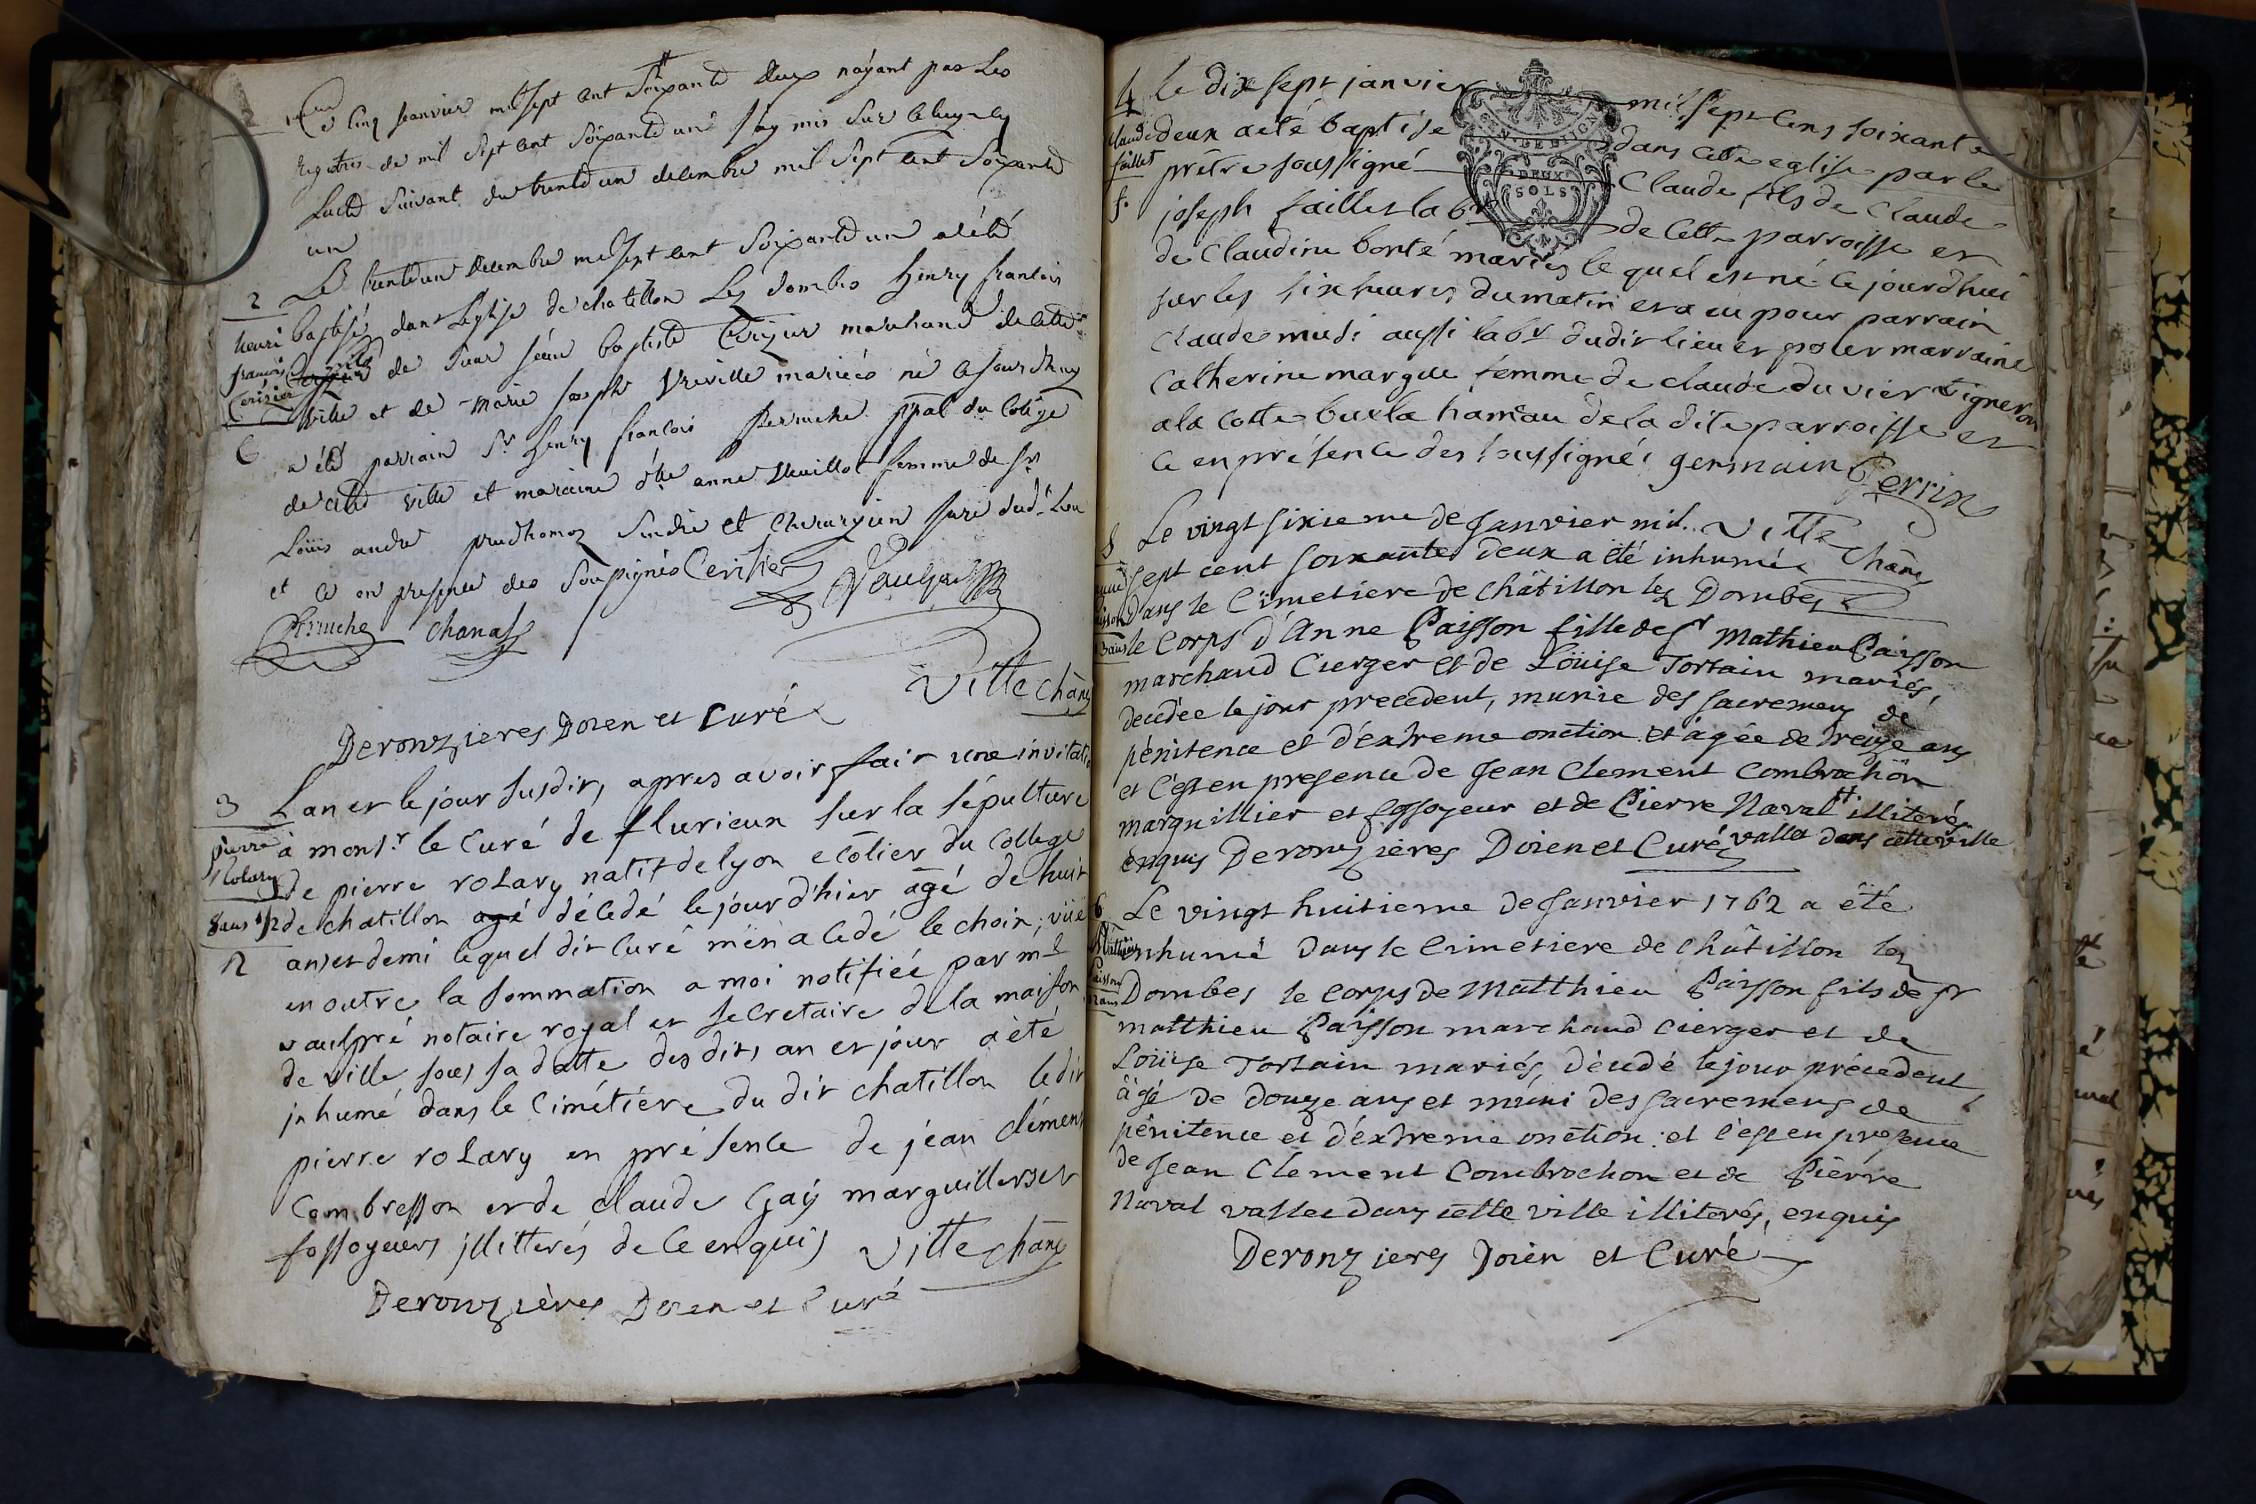 Le cinq Janvier mil sept cent Soixante deux n'ayant pas Les
registres de mil sept cent Soixante un J'ay mis Sur
Lacte Suivant du trente un decembre mil Sept cent Soixante
un
2
Le trente un decembre mil sept cent Soixante un a été
henri
françois
Cerisier
Baptisé dans L'eglise de chatillon Les dombes henry françois
de Sieur jean baptiste Cerisier marchand de cette
ville et de Marie joseph Vreville mariés né cejourdhuy
a été parrain Sr henry françois Perruche ppal du Colege
de cette ville et maraine dlle anne Vuillot femme de Sr
Loüis andré prudhomes Sindic et Chirurgien juré dud. Lieu
et ce en presence des Soussignés Cerisier
Perruche chanal
Ville chane
Deronzieres Doien et Curé
3
L'an et le jour susdit, apres avoir fait une invitation
pierre
rolary
8 ans 1/2
à monsr le Curé de flurieux sur la sépulture
de pierre rolary natif de lyon ecôlier du College
de chatillon agé décedé le jour d'hier âgé de huit
ans et demi le quel dit Curé m'en a cedé le choix; vüe
en outre la sommation a moi notifiée par me
vaulpré notaire royal et secretaire de la maison
de ville sous sa datte des dits an et jour a été
inhumé dans le cimétiére du dit chatillon le dit
pierre rolary en présence de jean clément
Combresson et de claude Gaÿ marguilliers et
fossoyeurs jllitterés de ce enquis Ville chane
Deronzières Doien et Curé
4 Le dix sept janvier mil sept cens soixante
Claude
faillet
f.
deux a été baptisé dans cette eglise par le
prêtre soussigné Claude fils de Claude
joseph faillet labr de cette parroisse et
de Claudine bonté mariés le quel est né ce jourd'hui
sur les six heures du matin et a eu pour parrain
Claude midi aussi labr dudit lieu et pour marraine
Catherine margue fémme de claude du vier vigneron
a la cotte buxla hameau de la dite parroisse et
ce en présence des soussignés germain Perrin
Ville chane
Le vingt sixieme de Janvier mil
sept cent soixante deux a été inhumée
dans le Cimetiere de châtillon les Dombes
le corps d'Anne Paisson fille de Sr Mathieu Paisson
marchand Cierger et de Loüise Tortain mariés,
decédée le jour precedent, munie des sacremens de
pénitence et d'extreme onction et âgée de treize ans
et c'est en presence de Jean Clement Combrochon
marguillier et fossoyeur et de Pierre Naval illiterés
enquis Deronzières Doien et Curé vallet dans cette ville
6
Le vingt huitieme de Janvier 1762 a été
inhumé dans le Cimetiere de châtillon les
Dombes le corps de Matthieu Paisson fils de Sr
matthieu Paisson marchand cierger et de
Loüise Tortain mariés, décedé le jour précedent
âgé de douze ans et muni des sacremens de
pénitence et d'extreme onction: et c'est en presence
de Jean Clement Combrochon et de Pierre
Naval vallet dans cette ville illiterés, enquis
Deronzieres Doien et Curé
DEUX
SOLS